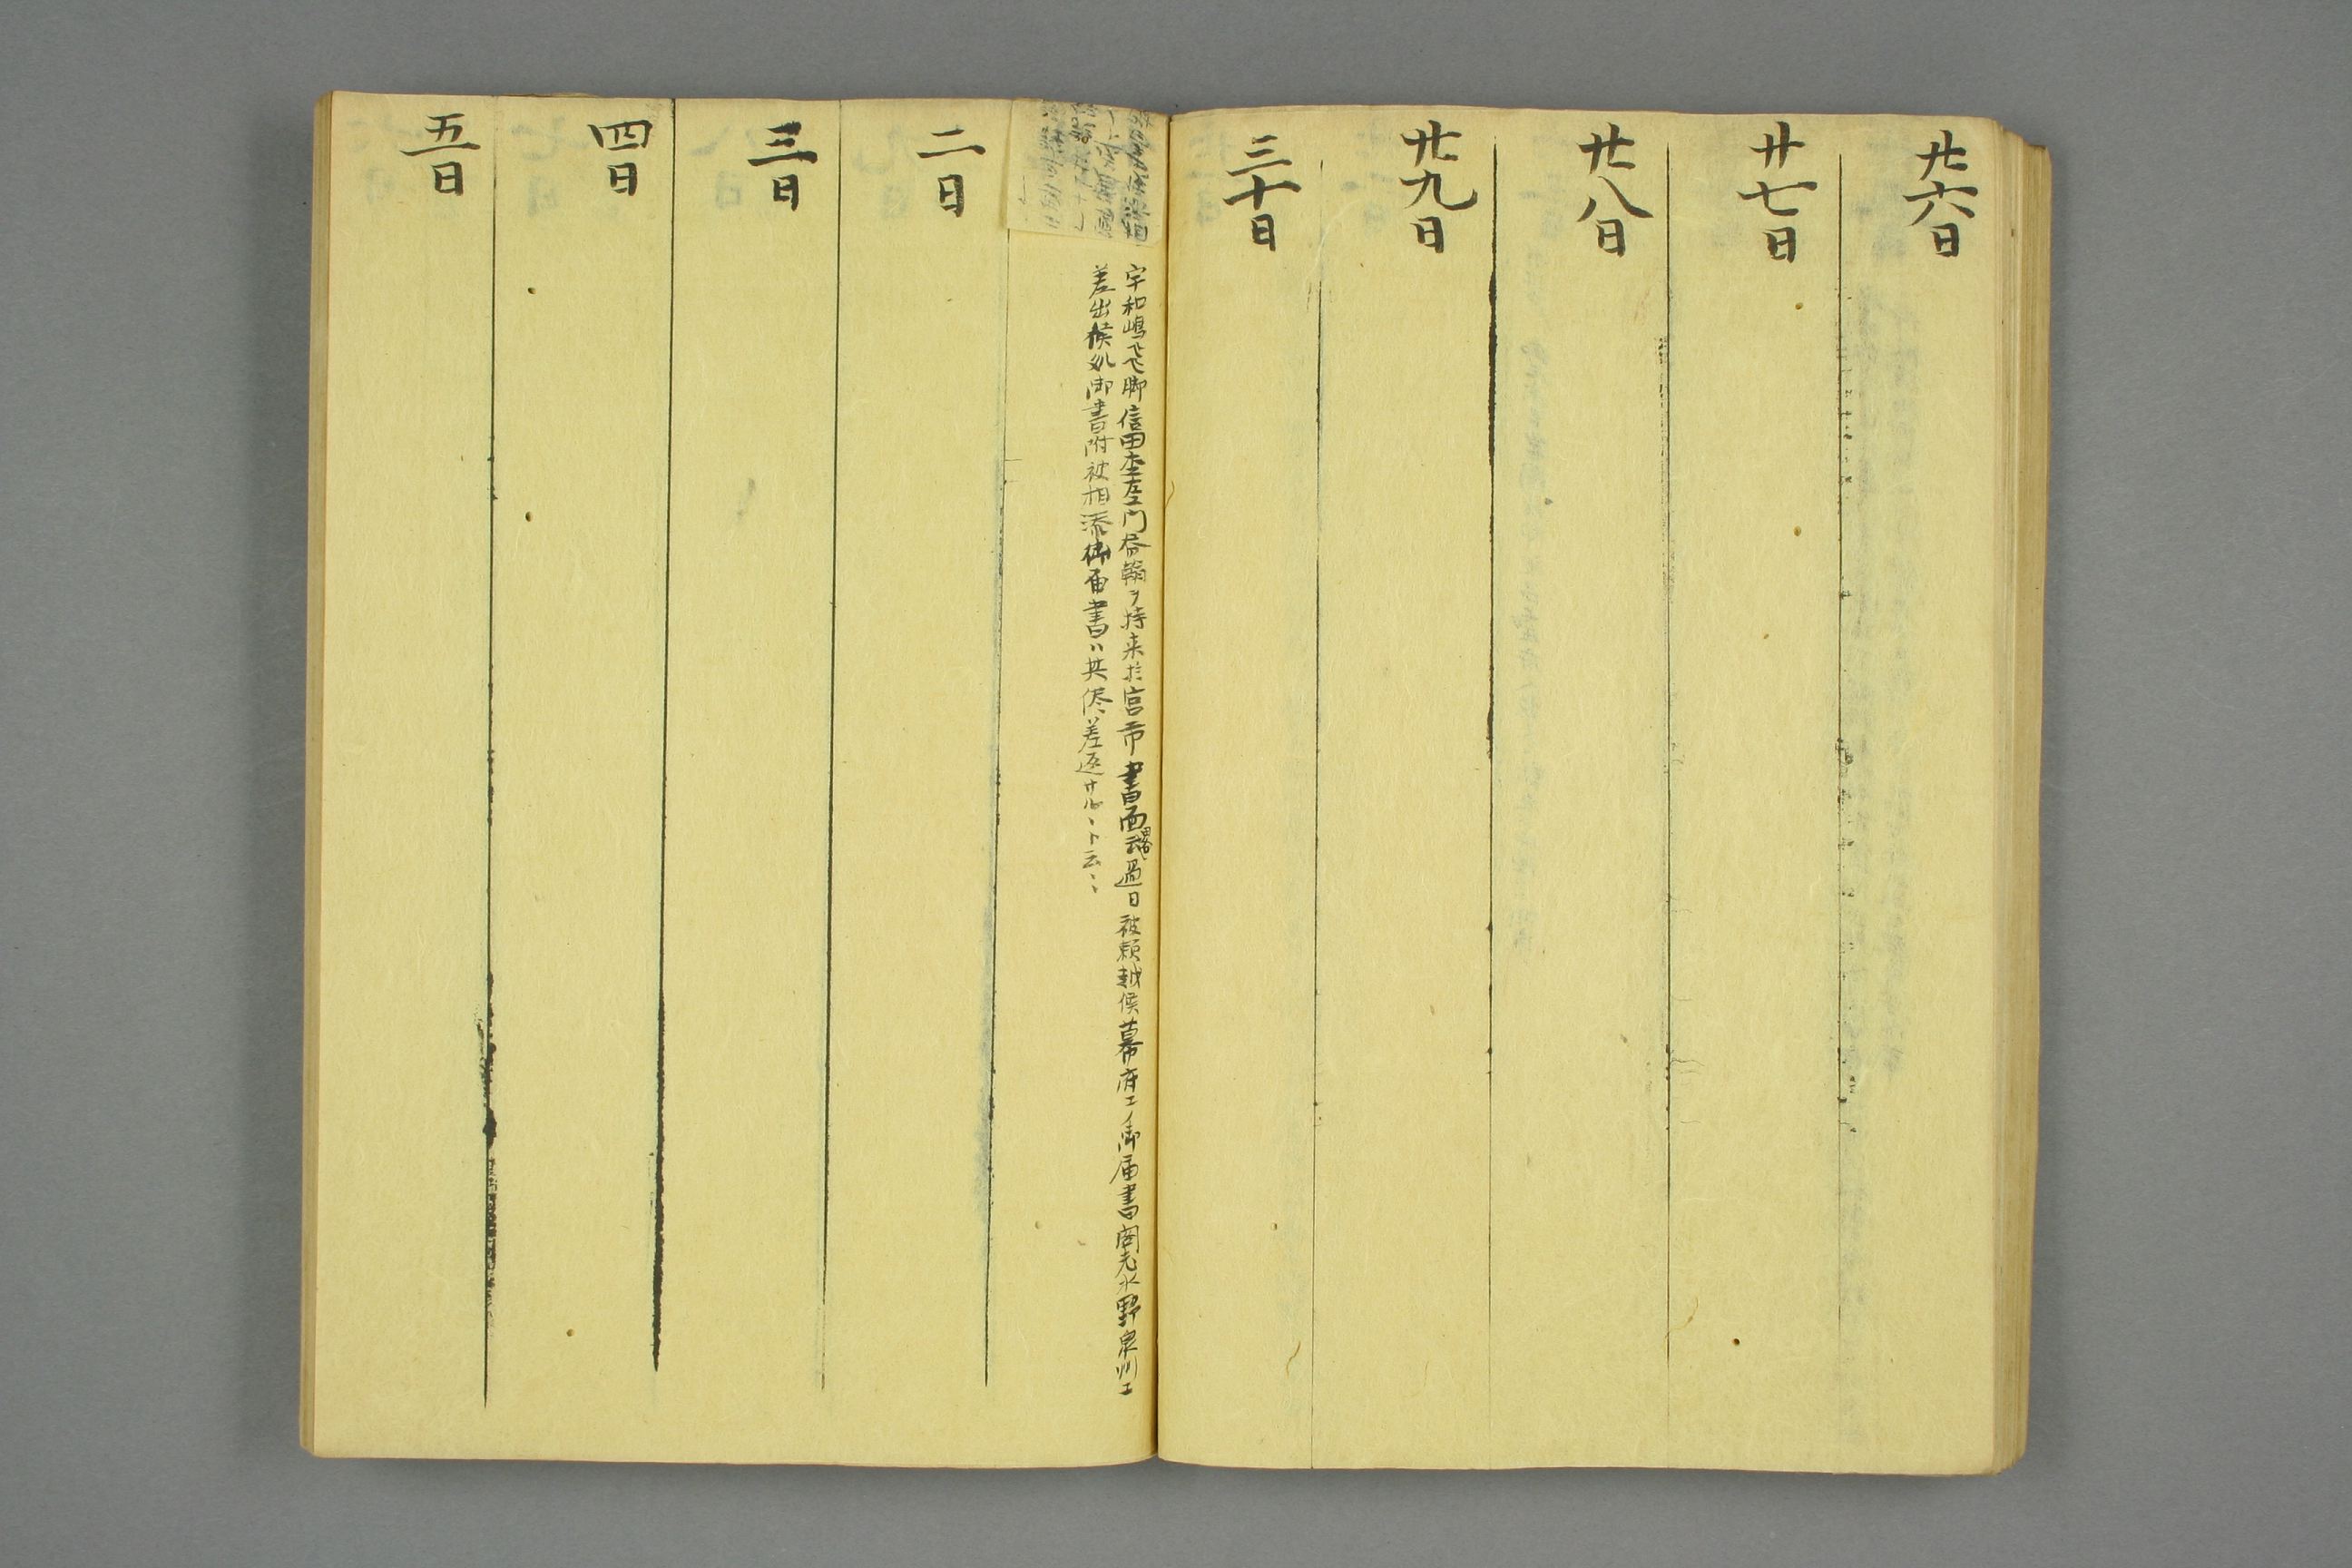 廿六日
廿七日
廿八日
廿九日
三十日
宇和嶋飛脚信田杢左エ門答翰ヲ持来於宮市書面略云過日被頼越候幕府エノ御届書閣老水野泉州エ
差出候処御書附被相添御届書ハ其侭差返サル、ト云々
二日
三日
四日
五日